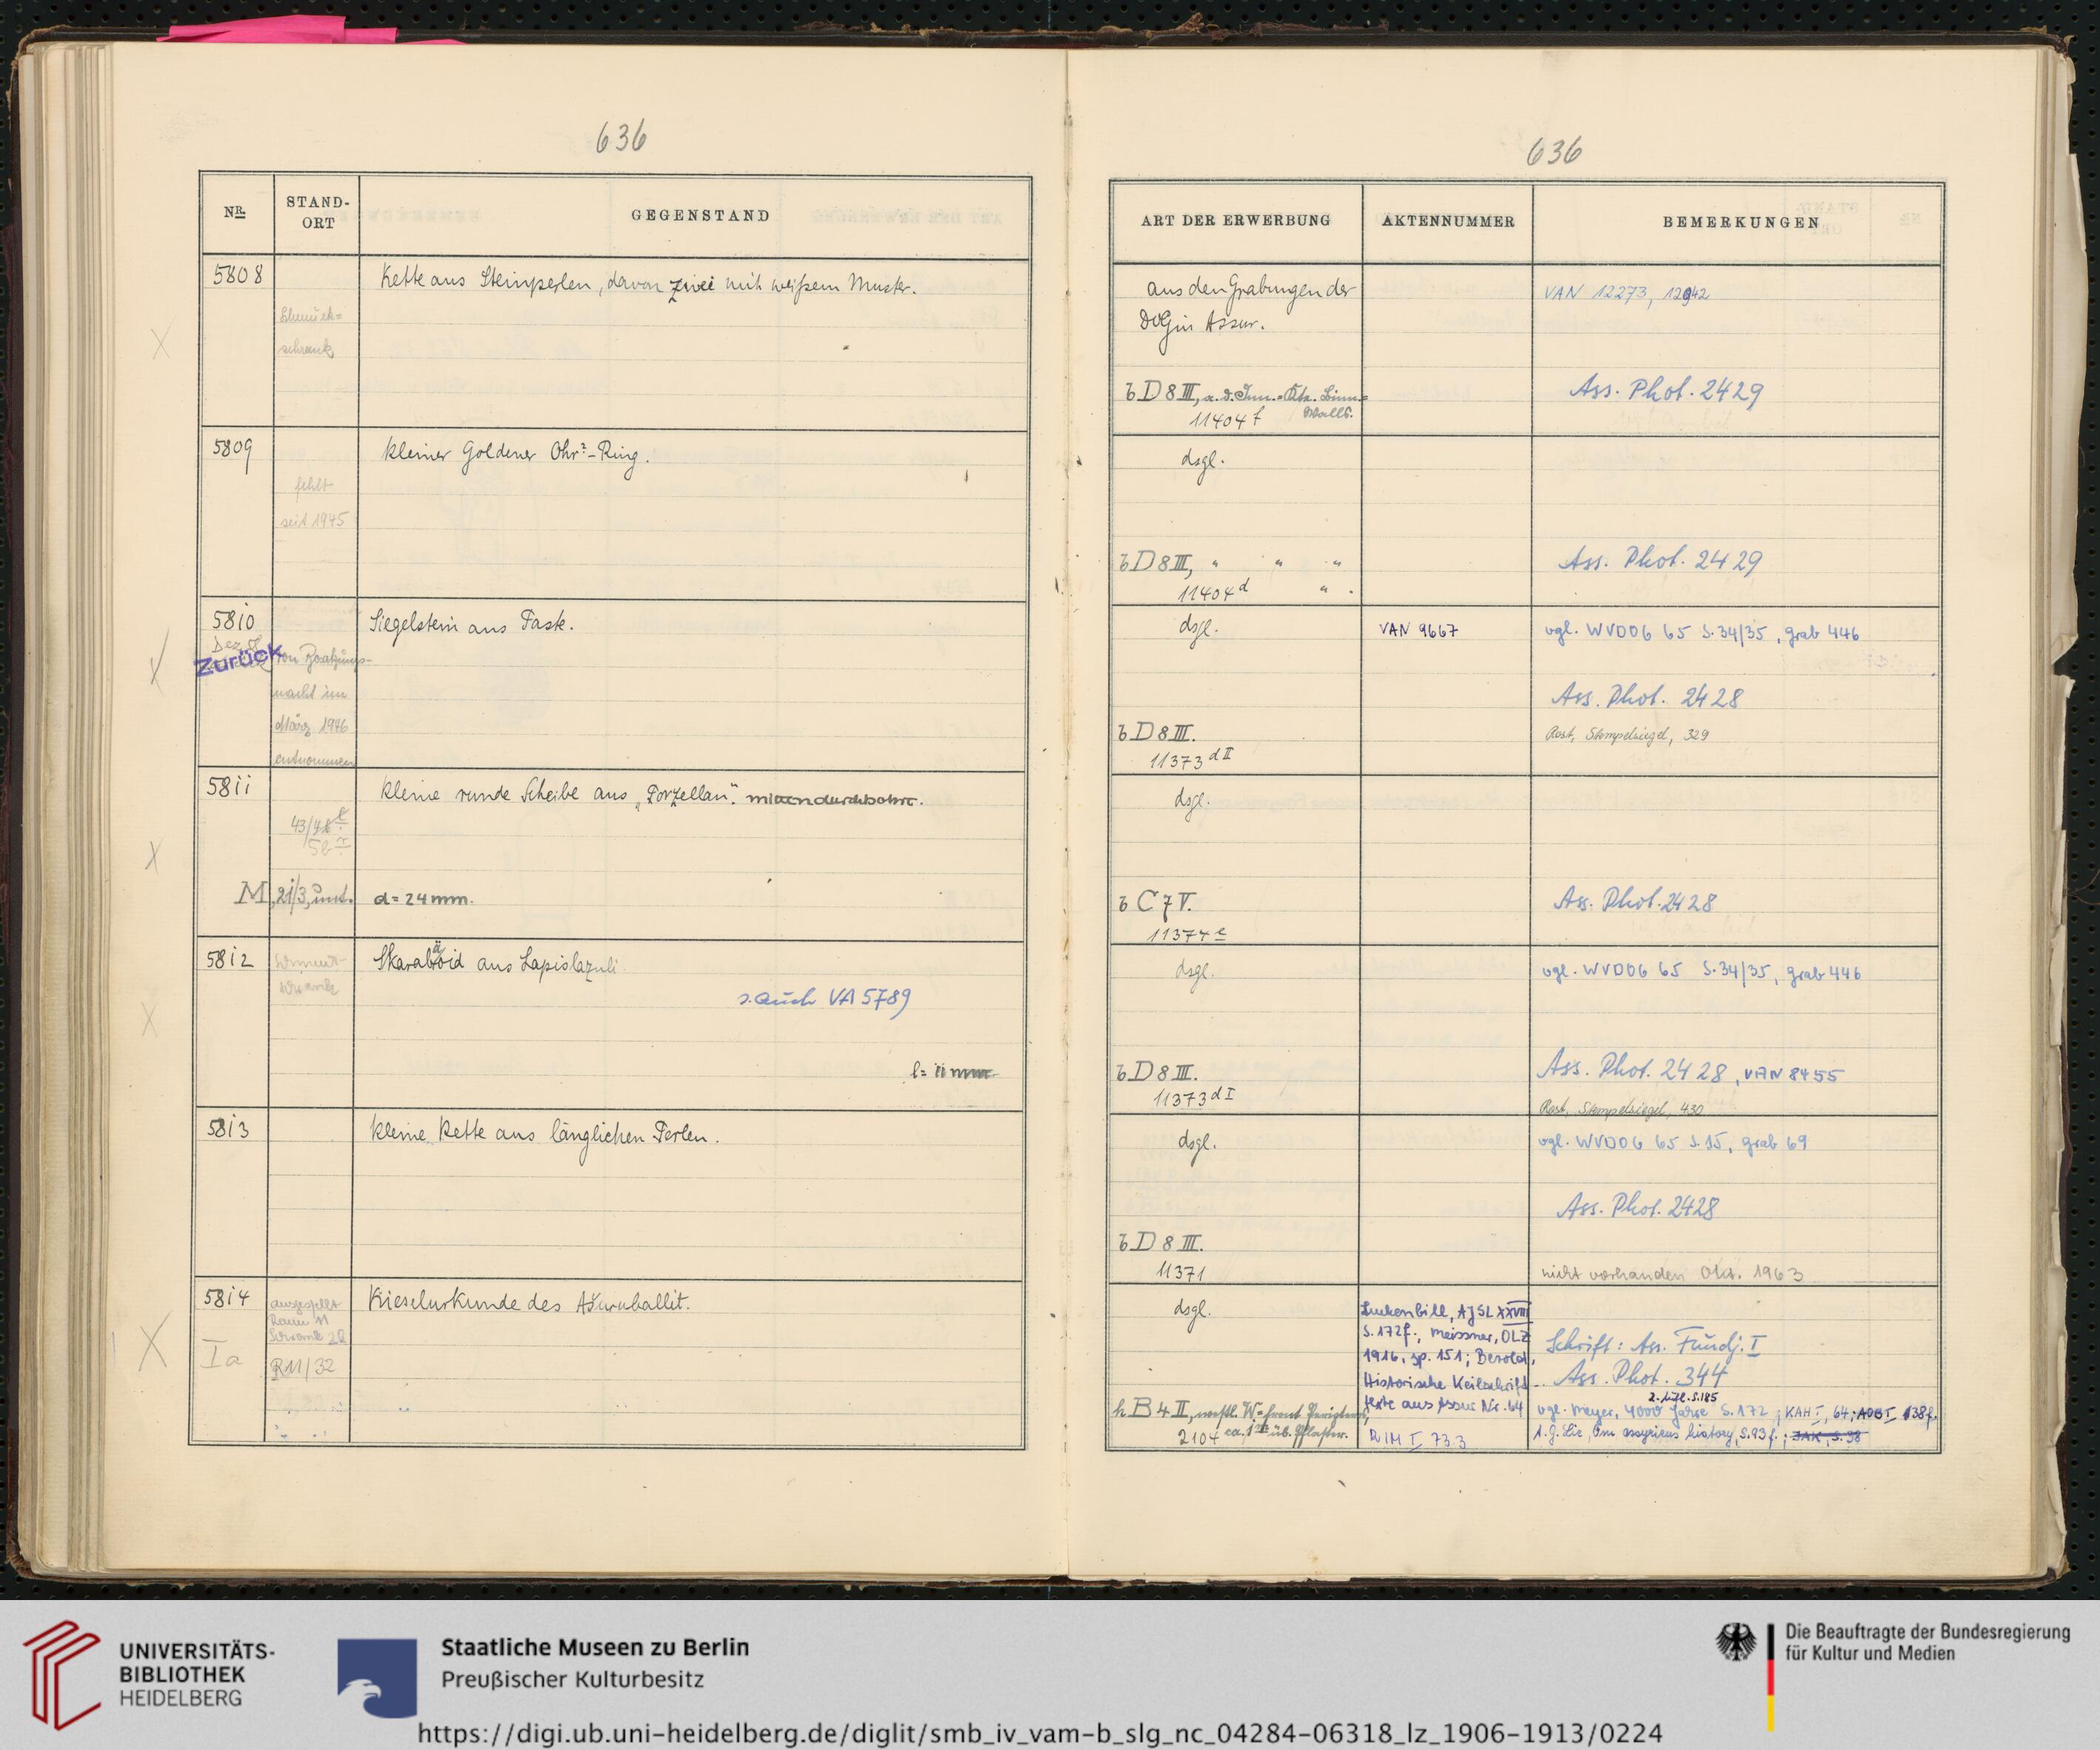 636
NR.
STAND-
ORT
GEGENSTAND
5808
Kette aus Steinperlen, davon zwei mit weißem Muster.
Schmuck=
schrank
5809
kleiner Goldener Ohr?-Ring.
fehlt
seit 1945
5810
Siegelstein aus Paste.
Zurück
von Besatzungs-
macht im
März 1946
entnommen
5811
kleine runde Scheibe aus „Porzellan“. mitten durchbohrt.
43/
M, 21/3, unt.
d = 24 mm.
5812
Skaraboid aus Lapislazuli.
Schmuck-
schrank
s. auch VA 5789
l = 11 mm
5813
kleine Kette aus länglichen Perlen.
5814
Kieselurkunde des Ašuruballit.
ausgestellt
Raum 11
Schrank 22
Ia
R11/32
636
ART DER ERWERBUNG
AKTENNUMMER
BEMERKUNGEN
aus den Grabungen der
DOG in Assur.
VAN 12273, 12942
b D 8 III, a. d. Inn.=Kte. Binn.=
Walls.
11404 f
Ass. Phot. 2429
dsgl.
b D 8 III, " " "
11404 d " .
Ass. Phot. 2429
dsgl.
VAN 9667
vgl. WVDOG 65 S. 34/35, Grab 446
Ass. Phot. 2428
b D 8 III.
Rost, Stempelsiegel, 329
11373 d II
dsgl.
b C 7 V.
Ass. Phot. 2428
11374 e
dsgl.
vgl. WVDOG 65 S. 34/35, Grab 446
b D 8 III.
Ass. Phot. 2428, VAN 8455
11373 d I
Rost, Stempelsiegel, 430
dsgl.
vgl. WVDOG 65 S. 15, Grab 69
Ass. Phot. 2428
b D 8 III.
11371
nicht vorhanden Okt. 1963
dsgl.
Luckenbill, AJSL XXVIII
S. 172f.; Meissner, OLZ
1916, Sp. 151; Bezold,
Historische Keilschrift-
texte aus Assur Nr. 64
RIM I 73.3
Schrift: Ass. Fundj. I
Ass. Phot. 344
2. Aufl. S. 185
vgl. Meyer, 4000 Jahre S. 172; KAH I, 64; AOB I 38f.
A. G. Lie, Om assyriens history, S. 93 f.; IAK, S. 38
h B 4 II, westl. W=front
2104 ca. 1 m üb. Pflaster.
UNIVERSITÄTS-
BIBLIOTHEK
HEIDELBERG
Staatliche Museen zu Berlin
Preußischer Kulturbesitz
Die Beauftragte der Bundesregierung
für Kultur und Medien
https://digi.ub.uni-heidelberg.de/diglit/smb_iv_vam-b_slg_nc_04284-06318_lz_1906-1913/0224